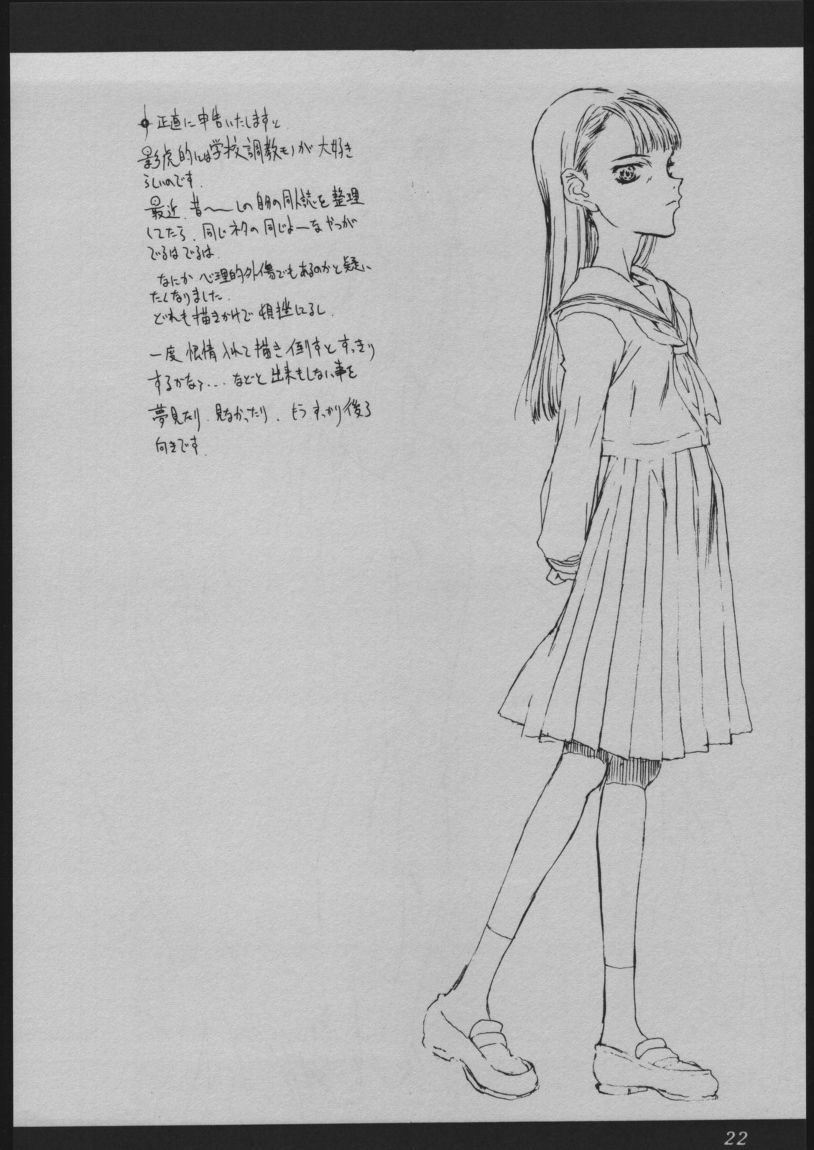 正直に申告いたしますと
影虎的には学校調教モノが大好き
らしいのです.
最近.昔〜〜しの自分の同人誌を整理
してたら.同じネタの同じよーなやつが
でるはでるは.
なにか心理的外傷でもあるのかと疑い
たくなりました.
どれも描きかけで頓挫してるし.
一度根情入れて描き倒すとすっきり
するかなァ...などと出来もしない事を
夢見たり.見なかったり.もうすっかり後ろ
向きです.
22